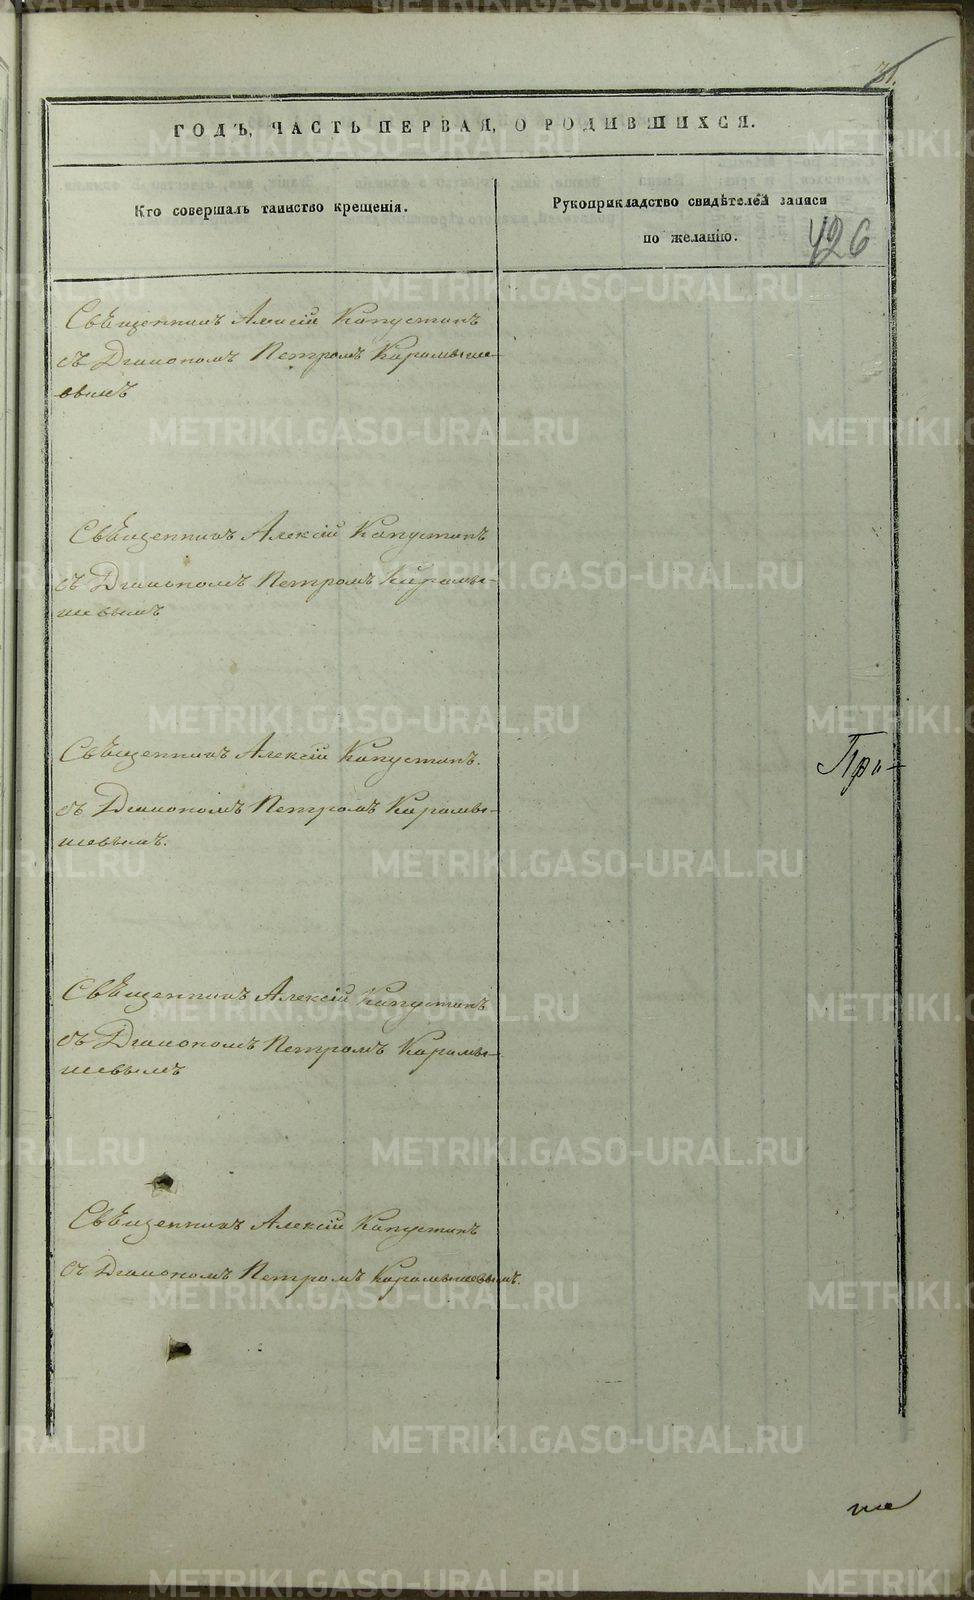 31.
ГОДЪ, ЧАСТЬ ПЕРВАЯ, О РОДИВШИХСЯ.
Кто совершалъ таинство крещенія.
Рукоприкладство свидѣтелей записи
по желанію.
426
Свѣщенникъ Алексій Капустинъ
съ Дьякономъ Петромъ Карамыше-
вымъ
Свѣщенникъ Алексій Капустинъ
съ Дьякономъ Петромъ Карамы-
шевымъ
Свѣщенникъ Алексій Капустинъ.
съ Дьякономъ Петромъ Карамы-
шевымъ.
При-
Свѣщенникъ Алексій Капустинъ
съ Дьякономъ Петромъ Карамы-
шевымъ
Свѣщенникъ Алексій Капустинъ
съ Дьякономъ Петромъ Карамышевымъ.
METRIKI.GASO-URAL.RU